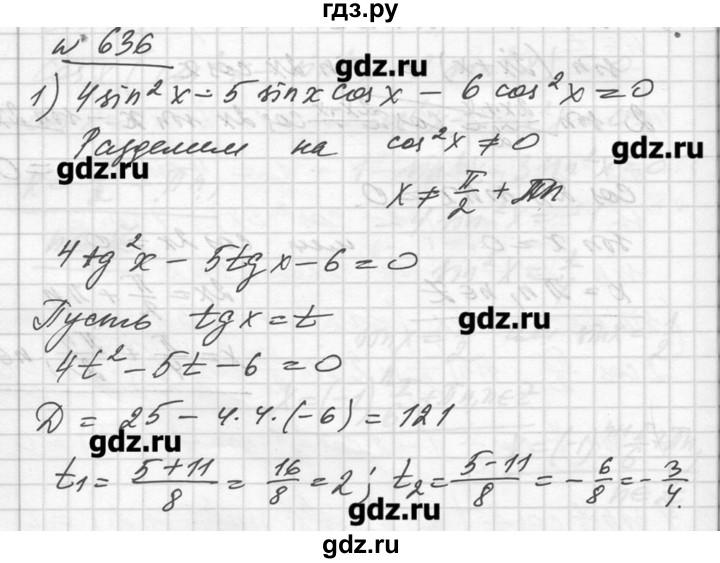 гдз.ру
№ 636
gdz.ru
1) 4sin²x - 5 sinx cosx - 6 cos²x = 0
Разделим на cos²x ≠ 0
gdz.ru
gdz.ru
x ≠ π/2 + πn
4tg²x - 5tgx - 6 = 0
Пусть tgx = t
gdz.ru
4t² - 5t - 6 = 0
D = 25 - 4·4·(-6) = 121
gdz.ru
t₁ = (5+11)/8 = 16/8 = 2; t₂ = (5-11)/8 = -6/8 = -3/4.
gdz.ru
gdz.ru